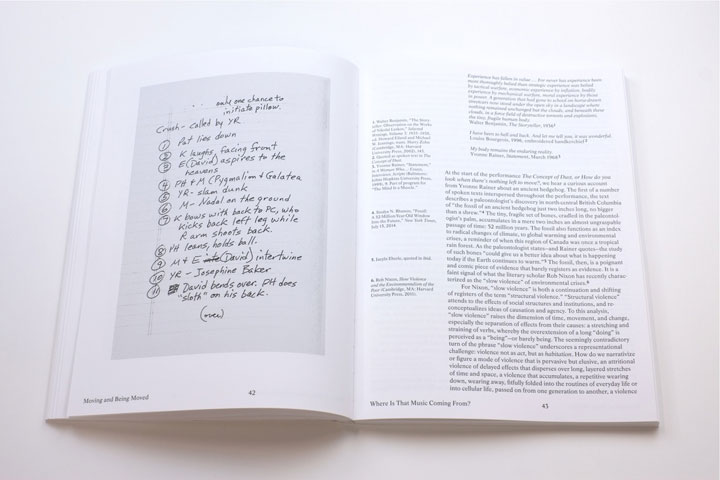 only one chance to
initiate pillow.
Crush - called by YR
① Pat lies down
② K laughs, facing front
③ E (David) aspires to the
heavens
④ PH & M (Pygmalion & Galatea
⑤ YR - slam dunk
⑥ M - Nadal on the ground
⑦ K bows with back to PC, who
kicks back left leg while
R arm shoots back.
⑧ PH leans, holds ball.
⑨ M & E (David) intertwine
⑩ YR - Josephine Baker
⑪ David bends over. PH does
"sloth" on his back.
(over)
42
Moving and Being Moved
Experience has fallen in value … For never has experience been
more thoroughly belied than strategic experience was belied
by tactical warfare, economic experience by inflation, bodily
experience by mechanical warfare, moral experience by those
in power. A generation that had gone to school on horse-drawn
streetcars now stood under the open sky in a landscape where
nothing remained unchanged but the clouds, and beneath those
clouds, in a force field of destructive torrents and explosions,
the tiny, fragile human body.
Walter Benjamin, The Storyteller, 1936¹
I have been to hell and back. And let me tell you, it was wonderful.
Louise Bourgeois, 1996, embroidered handkerchief²
My body remains the enduring reality.
Yvonne Rainer, Statement, March 1968³
1. Walter Benjamin, "The Story-
teller: Observations on the Works
of Nikolai Leskov," Selected
Writings, Volume 3: 1935–1938,
ed. Howard Eiland and Michael
W. Jennings (Cambridge, MA: Harvard
University Press, 2002), 143
At the start of the performance The Concept of Dust, or How do you
look when there's nothing left to move?, we hear a curious account
from Yvonne Rainer about an ancient hedgehog. The first of a number
of spoken texts interspersed throughout the performance, the text
describes a paleontologist's discovery in north-central British Columbia
of "the fossil of an ancient hedgehog just two inches long, no bigger
than a shrew."⁴ The tiny, fragile set of bones, cradled in the paleontol-
ogist's palm, accumulates in a mere two inches an almost ungraspable
passage of time: 52 million years. The fossil also functions as an index
to radical changes of climate, to global warming and environmental
crises, a reminder of when this region of Canada was once a tropical
rain forest. As the paleontologist states—and Rainer quotes—the study
of such bones "could give us a better idea about what is happening
today if the Earth continues to warm."⁵ The fossil, then, is a poignant
and comic piece of evidence that barely registers as evidence. It is a
faint signal of what the literary scholar Rob Nixon has recently charac-
terized as the "slow violence" of environmental crises.⁶
For Nixon, "slow violence" is both a continuation and shifting
of registers of the term "structural violence." "Structural violence"
attends to the effects of social structures and institutions, and re-
conceptualizes ideas of causation and agency. To this analysis,
"slow violence" raises the dimension of time, movement, and change,
especially the separation of effects from their causes: a stretching and
straining of verbs, whereby the overextension of a long "doing" is
perceived as a "being"—or barely being. The seemingly contradictory
turn of the phrase "slow violence" underscores a representational
challenge: violence not as act, but as habitation. How do we narrativize
or figure a mode of violence that is pervasive but elusive, an attritional
violence of delayed effects that disperses over long, layered stretches
of time and space, a violence that accumulates, a repetitive wearing
down, wearing away, fitfully folded into the routines of everyday life or
into cellular life, passed on from one generation to another, a violence
5. Jaelyn Eberle, quoted in ibid.
6. Rob Nixon, Slow Violence
and the Environmentalism of the
Poor (Cambridge, MA: Harvard
University Press, 2011).
Where Is That Music Coming From?
43